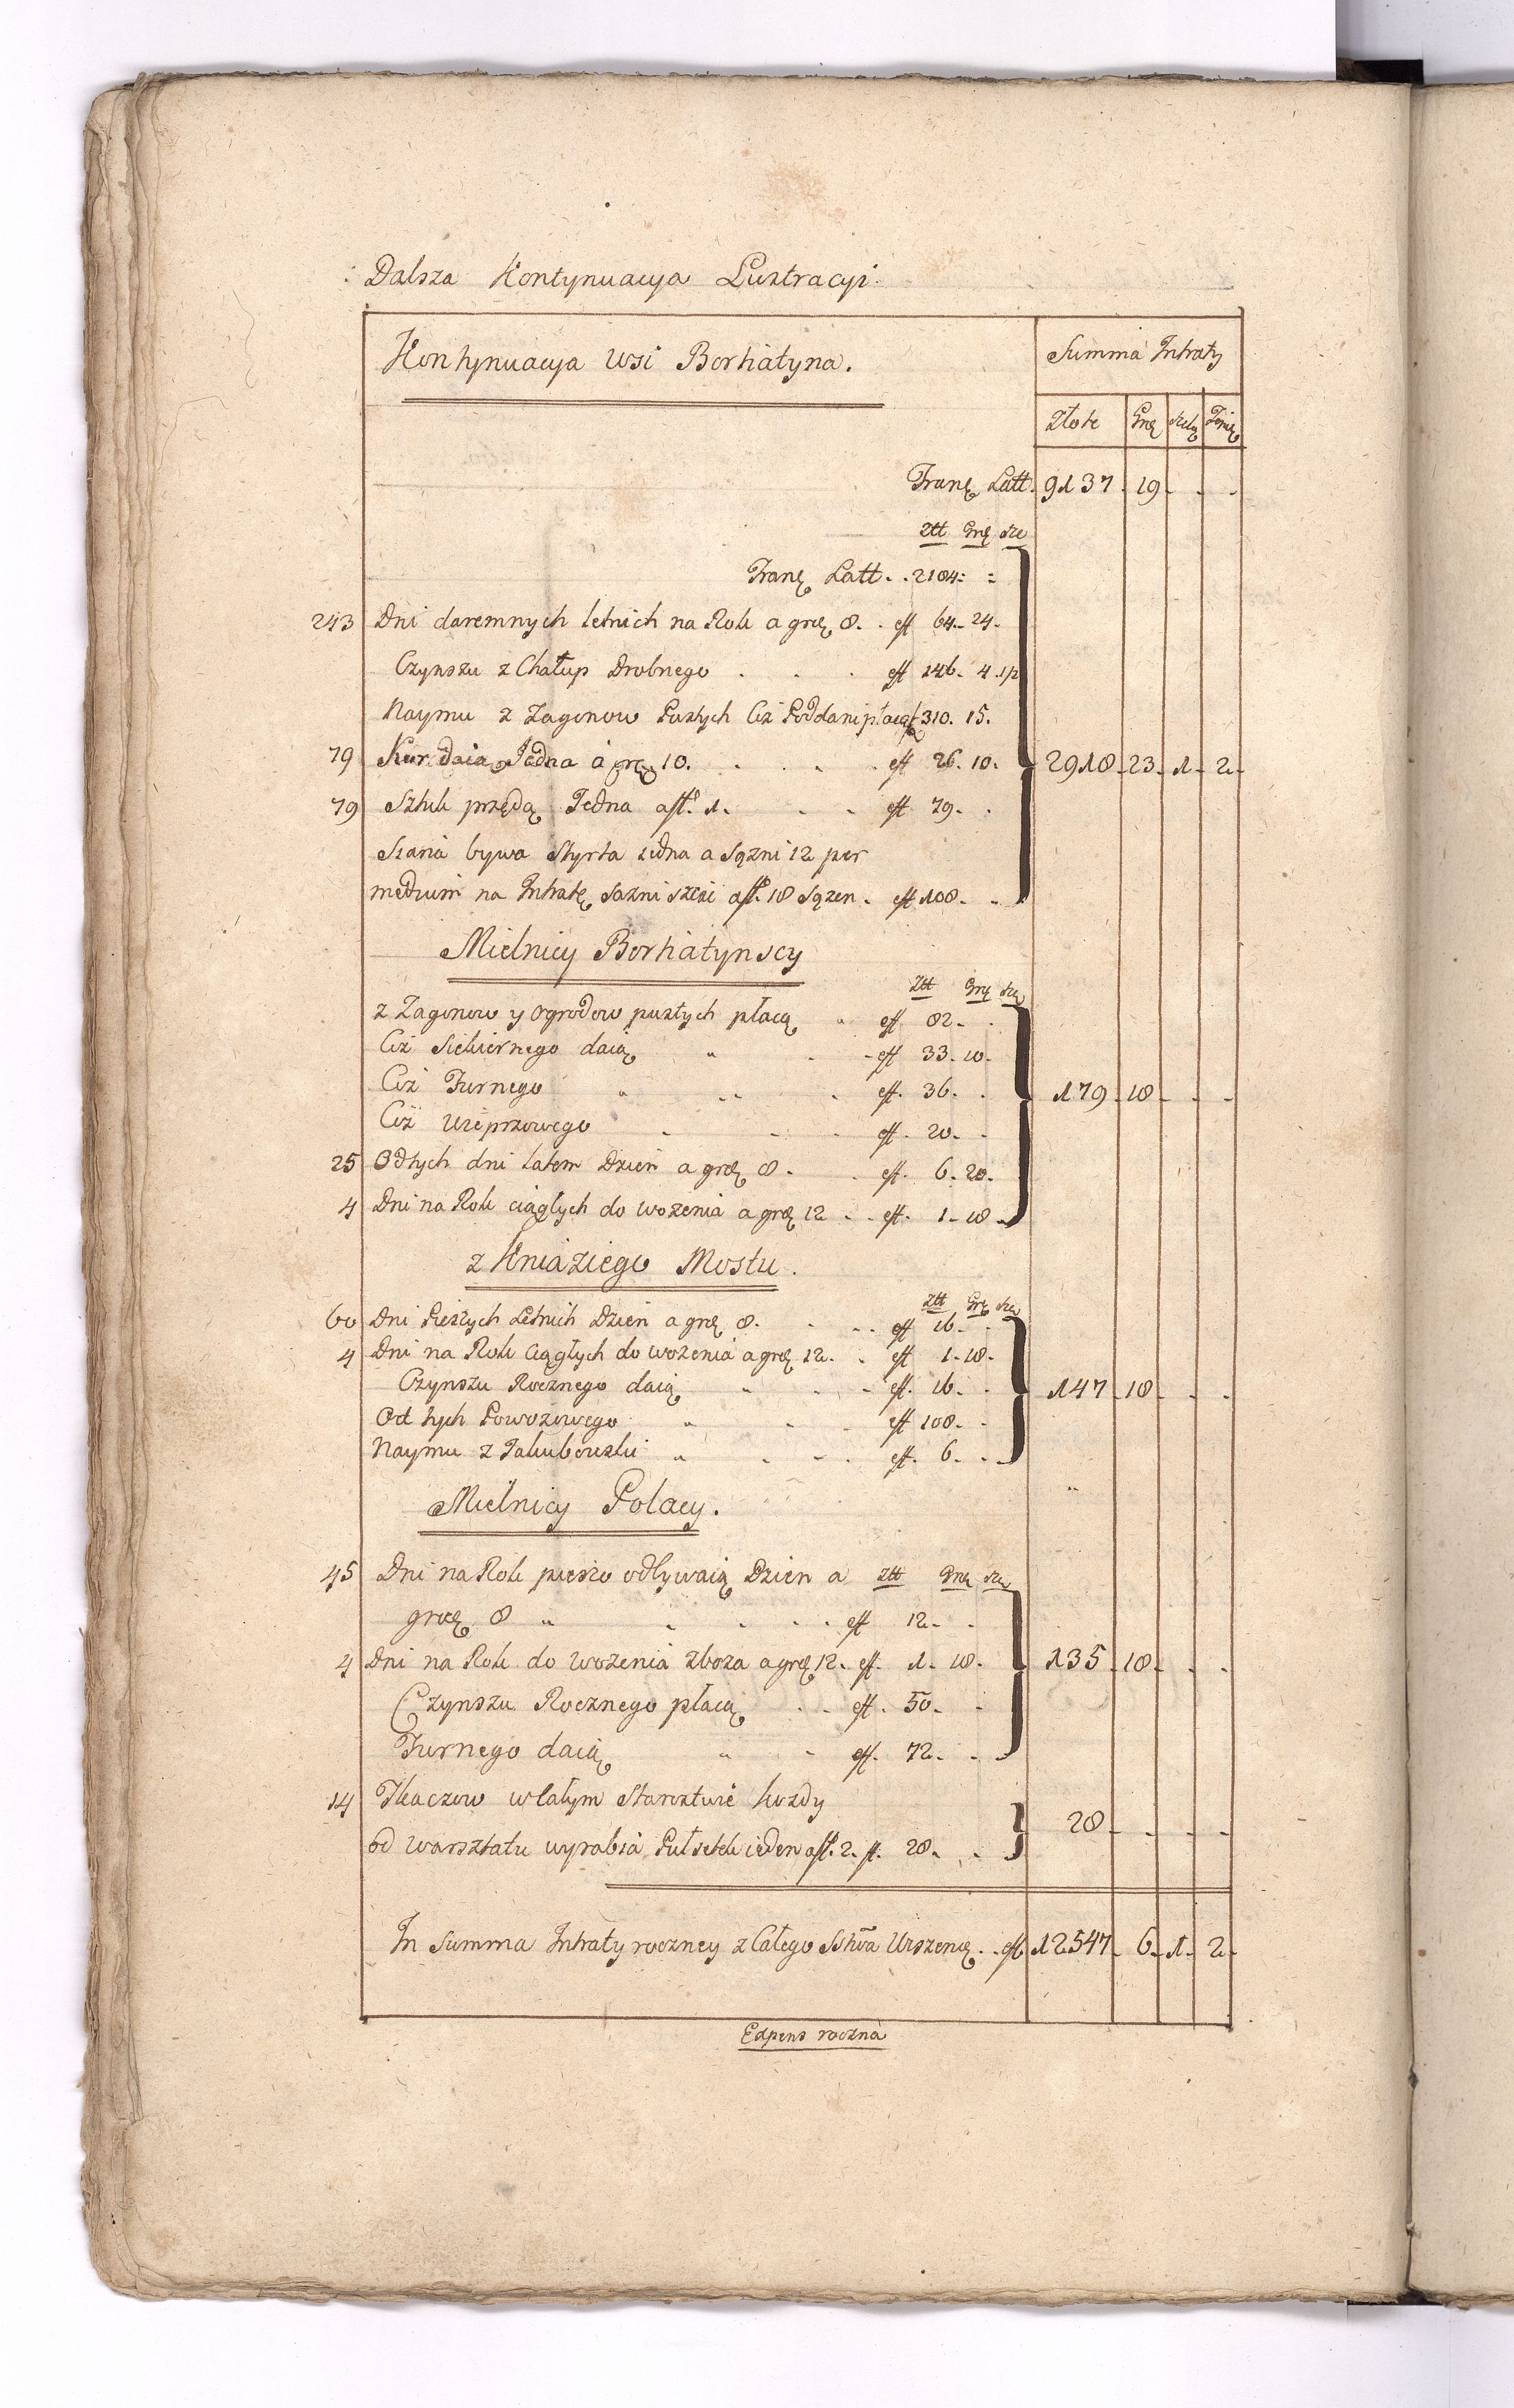 Dalsza Kontynuacya Lustracyi
Kontynuacya Wsi Borhatyna.
Summa Intraty
Złote Grę Szelą Fenię
Tranę Latt. 9137 19
Ztt Grę Sze
Tranę Latt. 2184
243 Dni daremnych letnich na Rok a groę 8. ff 64. 24.
Czynszu z Chałup Drobnego ff 146. 4. 1/2
Naymu z Zagonow Pustych Ciż Poddani płacą f 310. 15.
79 Kur daią Jedna á grę. 10. ff 26. 10. 2918 23 1 2
79 Sztuk przędą Jedna aff. 1. ff 79.
Siana bywa Styrta iedna a Sązni 12 per
medium na Intratę sazni sześć aff. 18 Sązen. ff 108.
Mielnicy Borhatynscy
Ztt Grę Szę
z Zagonow y ogrodow pustych płacą ff 82.
Ciż Siekiernego daią ff 33. 10.
Ciż Furnego ff. 36. 179 18
Ciż Wieprzowego ff. 20.
25 Odtych dni latem Dzień a groę 8. ff. 6. 20.
4 Dni na Rok ciągłych do wożenia a groę 12 ff. 1. 18
z Kniaziego Mostu.
Ztt Grę Szę
60 Dni Pieszych Letnich Dzień a groę 8. ff 16.
4 Dni na Rok Ciągłych do wożenia a groę 12. ff 1. 18.
Czynszu Rocznego daią ff. 16. 147 18
Od tych Powozowego ff 108.
Naymu z Jakubowski ff. 6.
Mielnicy Polacy.
45 Dni na Rok pieszo odbywaią Dzien a Ztt Grę Szę
groę 8 ff 12.
4 Dni na Rok do Wożenia Zboża a groę 12. ff. 1. 18. 135 18
Czynszu Rocznego płacą ff. 50.
Furnego daią ff. 72.
14 Tkaczow w całym Starostwie każdy
od warsztatu wyrabia Puł setek ieden aff. 2. ff. 28. 28
In Summa Intraty roczney z Całego Sstwa Wiszenię. ff 12547 6 1 2
Expens roczna